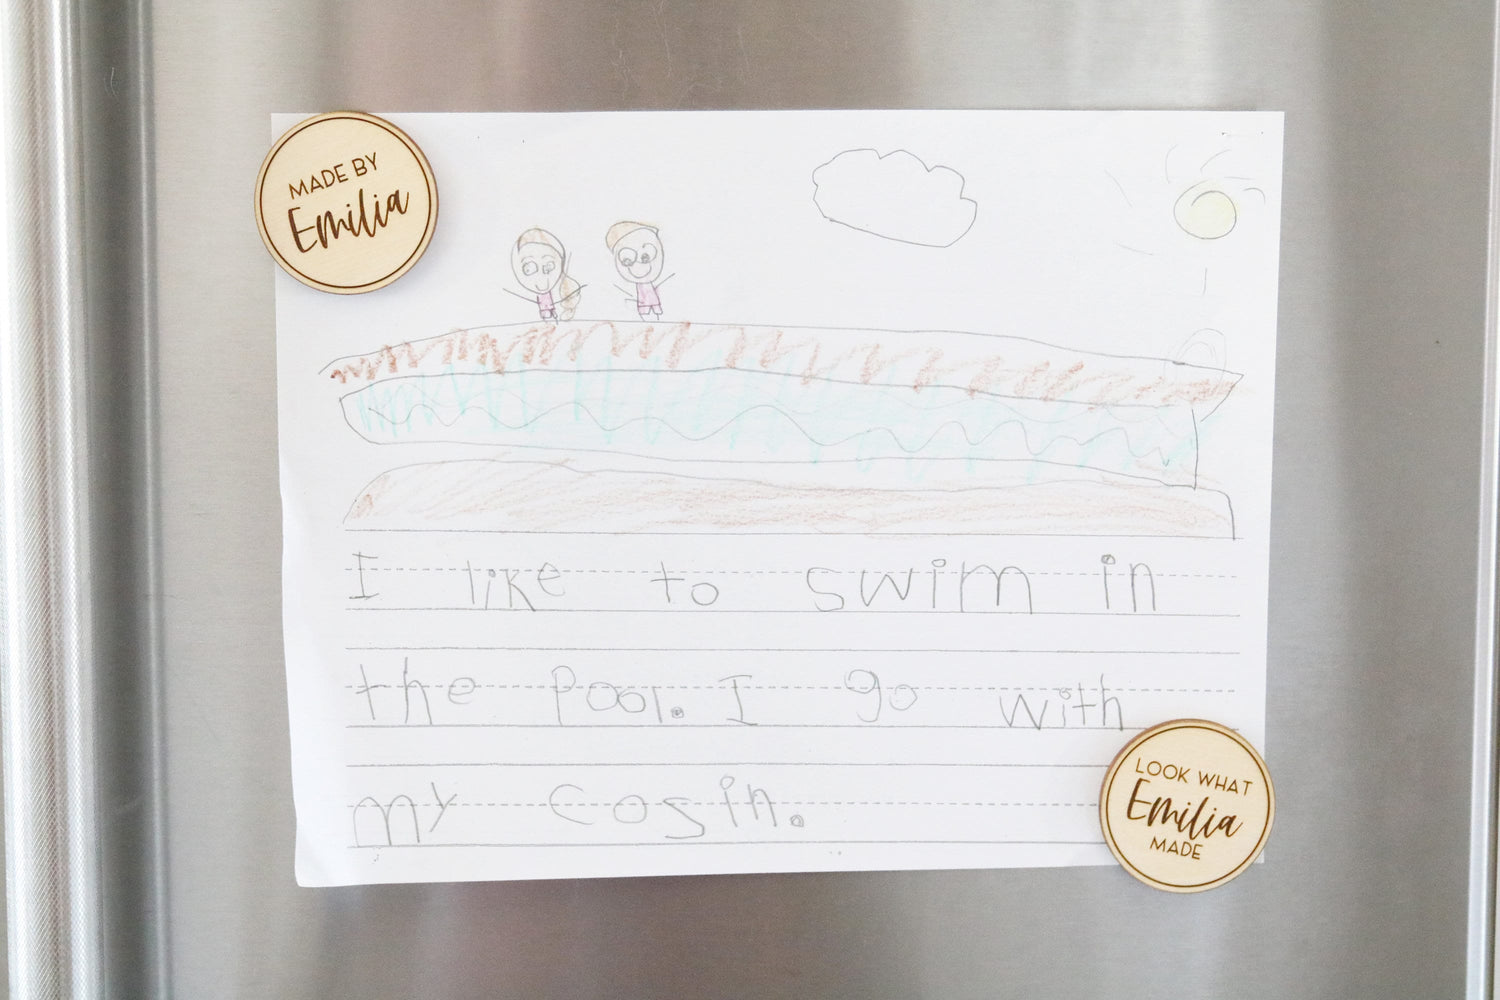 MADE BY
Emilia
I like to swim in
the pool. I go with
my cosin.
LOOK WHAT
Emilia
MADE